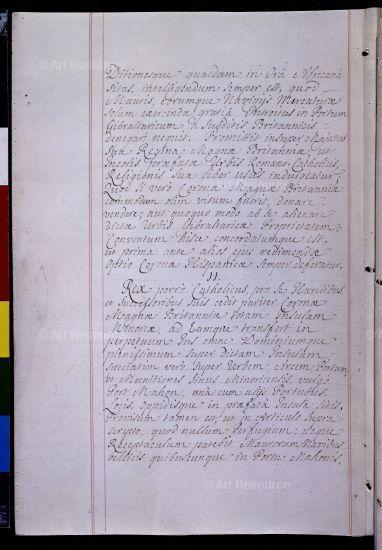 Ditionesque quasdam in Ora Africana
sitas, intelligendum semper est, quod
Mauris, eorumque Navigiis Mercaturæ
solum exercendæ gratia Introitus in Portum
Gibraltaricum à Subditis Britannicis
denegari nequit. Promittit insuper Majestas
Sua Regina Magnæ Britanniæ, ut
Incolis præfatæ Urbis Romano-Catholicis,
Religionis suæ liber usus indulgeatur;
Quod si verò Coronæ Magnæ Britanniæ
commodum olim visum fuerit, donare,
vendere, aut quoquo modo ab se alienare
dictæ Urbis Gibraltaricæ Proprietatem;
Conventum hisce concordatumque est,
ut prima ante alios ejus redimendæ
optio Coronæ Hispanicæ semper deferatur.
11.
Rex porrò Catholicus, pro se Hæredibus
et Successoribus suis cedit pariter Coronæ
Magnæ Britanniæ totam Insulam
Minoricæ, ad Eamque transfert in
perpetuum Jus omne Dominiumque
plenissimum super dictam Insulam
speciatim verò super Urbem, Arcem, Portum,
et Munitiones Sinus Minoricensis, vulgo
Port Mahon, una cum aliis Portubus,
Locis, Oppidisque in præfata Insula sitis.
Provisum tamen est, ut in Articulo supra
scripto, quod nullum Perfugium, neque
Receptaculum pateat Maurorum Navibus
bellicis quibuscunque in Portu Mahonis,
© Art Resource
© Art Resource